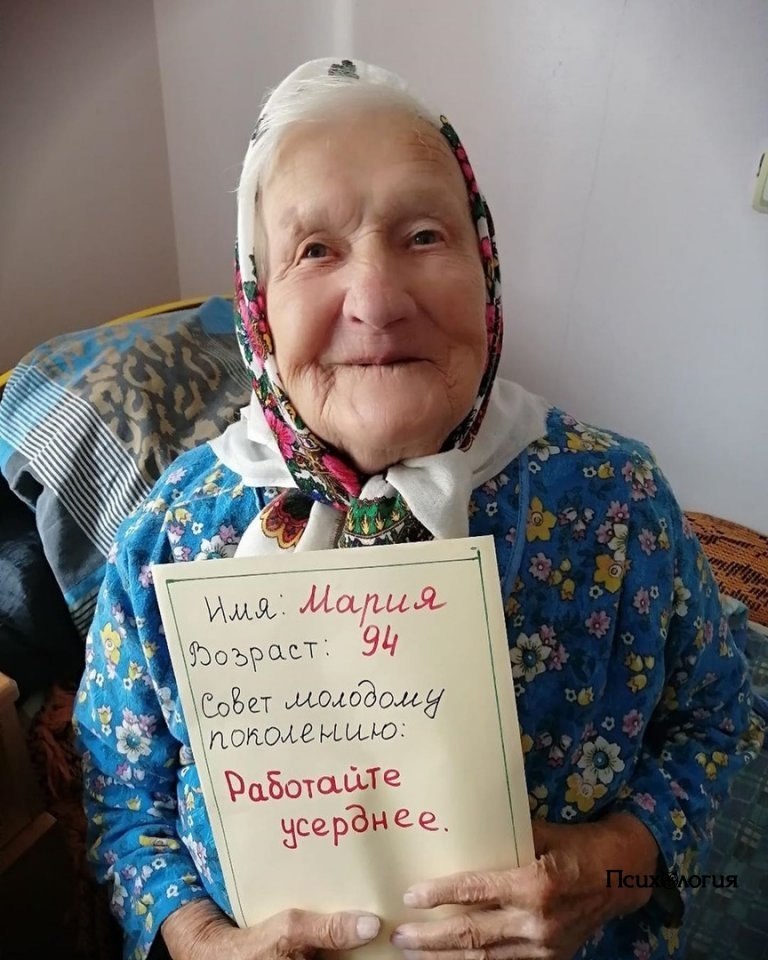 Имя: Мария
Возраст: 94
Совет молодому
поколению:
Работайте
усерднее.
Психология